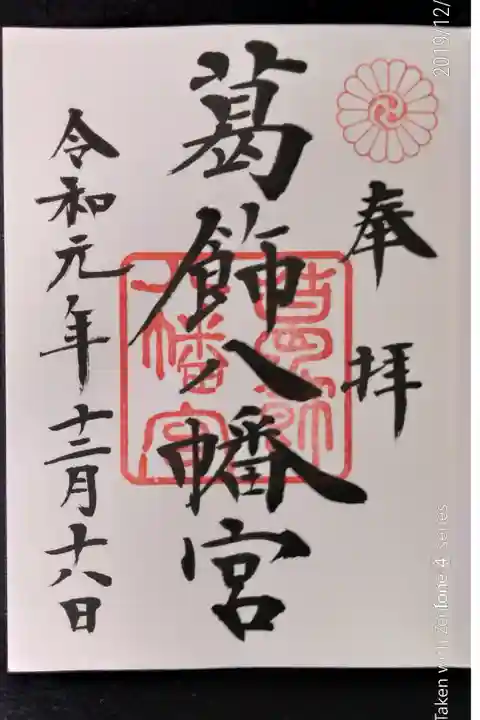 奉拝
葛飾八幡宮
葛飾八幡宮
令和元年十二月十八日
2019/12/
Taken with Zenfone 4 series